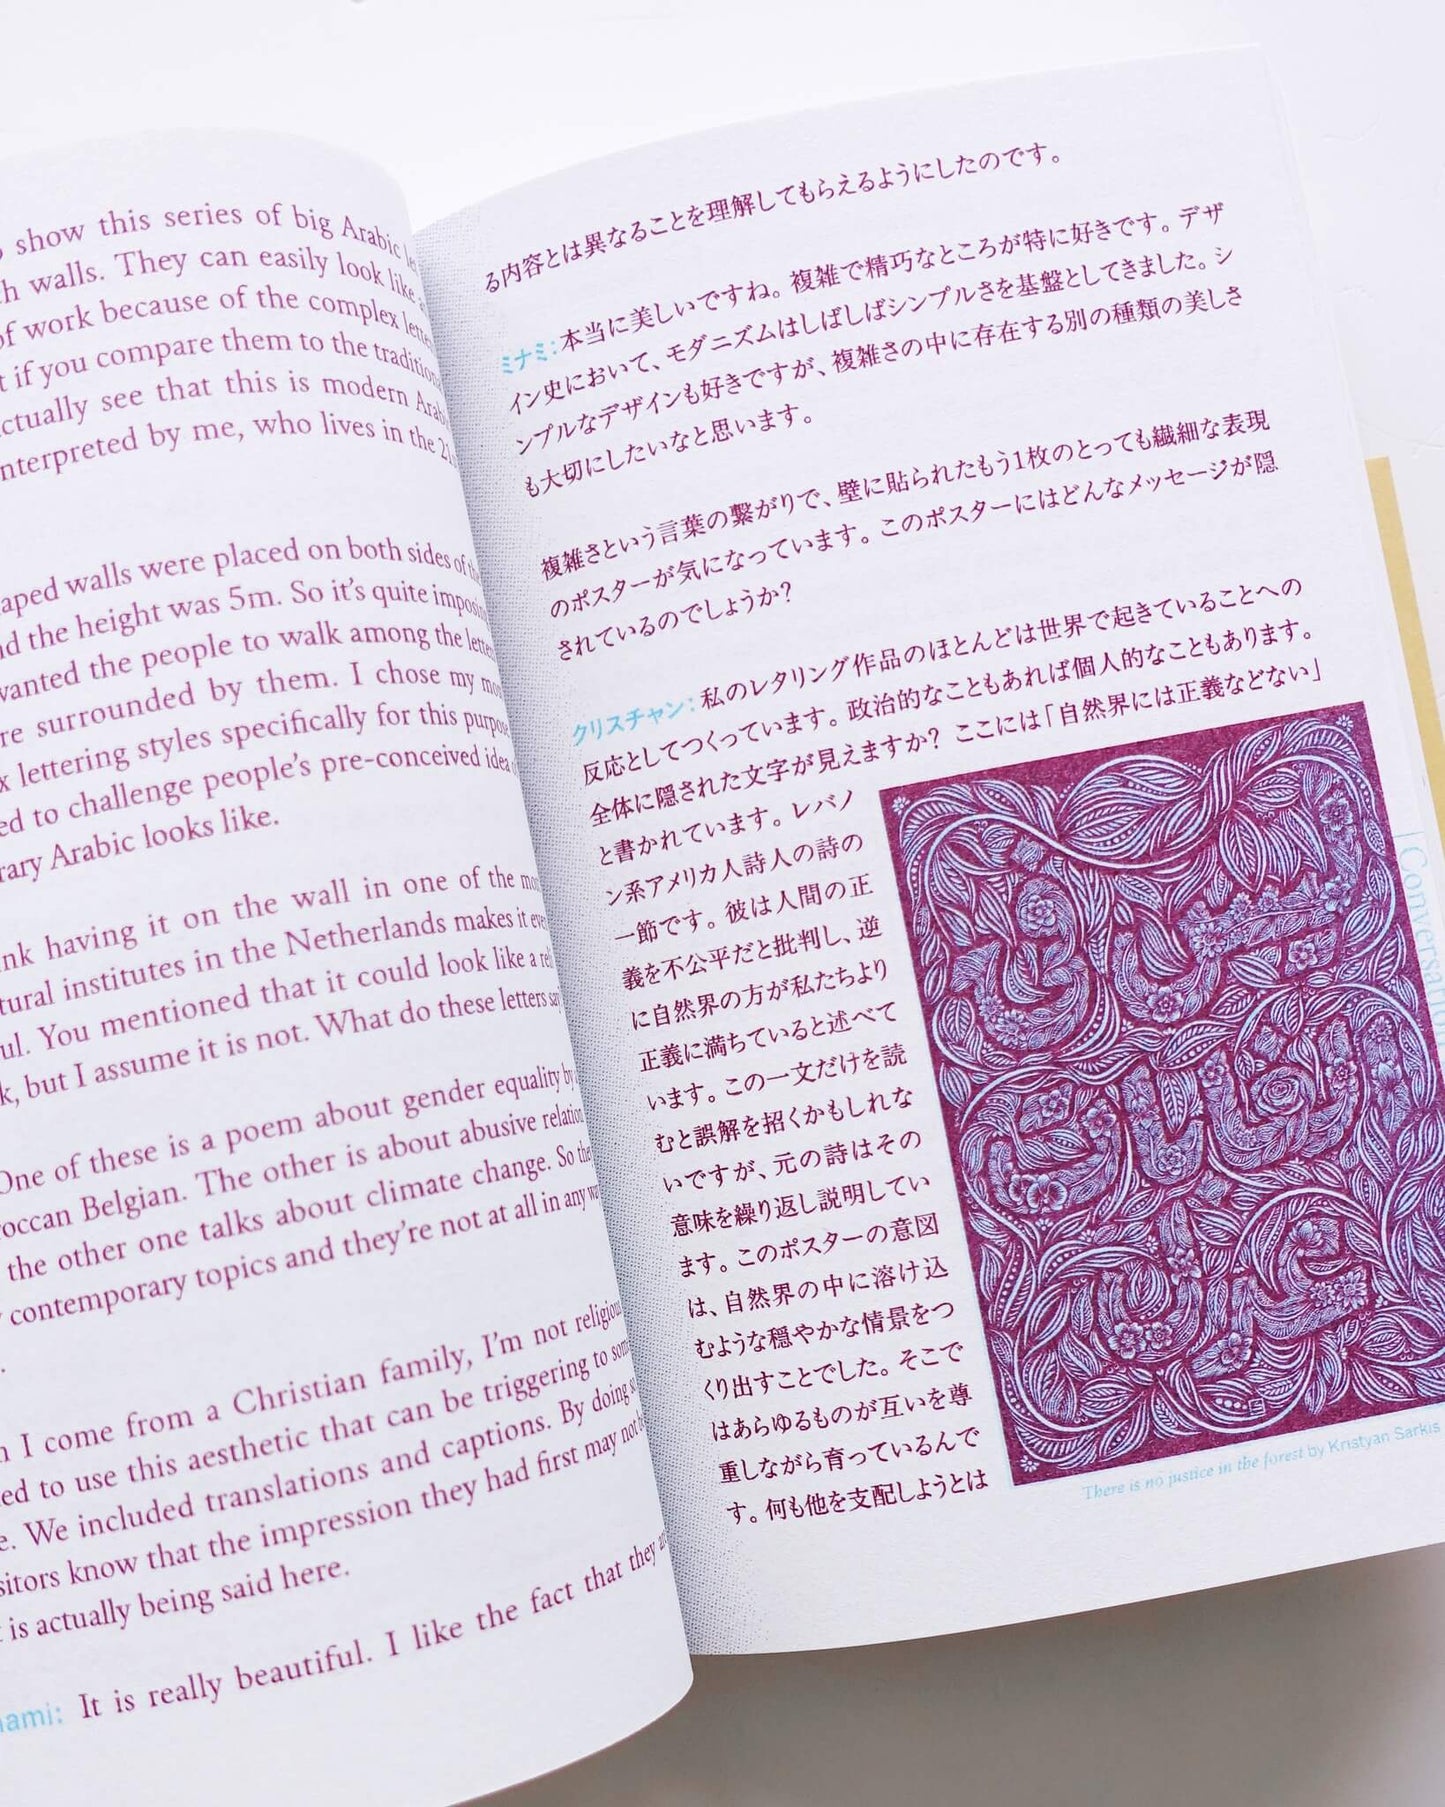 show this series of big Arabic
walls. They can easily look like
of work because of the complex
if you compare them to the
see that this is modern
by me, who lives in the
walls were placed on both sides of
the height was 5m. So it's quite
the people to walk among the
surrounded by them. I chose my
lettering styles specifically for this
to challenge people's pre-conceived idea
Arabic looks like.
having it on the wall in one of the
institutes in the Netherlands makes it
You mentioned that it could look like a
but I assume it is not. What do these letters
One of these is a poem about gender equality by
Belgian. The other is about abusive
the other one talks about climate change. So
contemporary topics and they're not at all in any
I come from a Christian family, I'm not religious
to use this aesthetic that can be triggering to
We included translations and captions. By doing
know that the impression they had first may not
is actually being said here.
It is really beautiful. I like the fact that they
る内容とは異なることを理解してもらえるようにしたのです。
ミナミ：本当に美しいですね。複雑で精巧なところが特に好きです。デザ
イン史において、モダニズムはしばしばシンプルさを基盤としてきました。シ
ンプルなデザインも好きですが、複雑さの中に存在する別の種類の美しさ
も大切にしたいなと思います。
複雑さという言葉の繋がりで、壁に貼られたもう1枚のとっても繊細な表現
のポスターが気になっています。このポスターにはどんなメッセージが隠
されているのでしょうか？
クリスチャン：私のレタリング作品のほとんどは世界で起きていることへの
反応としてつくっています。政治的なこともあれば個人的なこともあります。
全体に隠された文字が見えますか？ ここには「自然界には正義などない」
と書かれています。レバノ
ン系アメリカ人詩人の詩の
一節です。彼は人間の正
義を不公平だと批判し、逆
に自然界の方が私たちより
正義に満ちていると述べて
います。この一文だけを読
むと誤解を招くかもしれな
いですが、元の詩はその
意味を繰り返し説明してい
ます。このポスターの意図
は、自然界の中に溶け込
むような穏やかな情景をつ
くり出すことでした。そこで
はあらゆるものが互いを尊
重しながら育っているんで
す。何も他を支配しようとは
There is no justice in the forest by Kristyan Sarkis